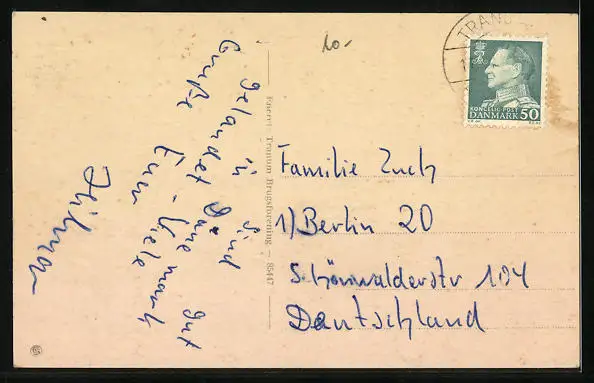 10.-
TRAN
KONGELIG POST
DANMARK 50
Eneret Tranum Brugsforening — 85447
Sind gut
in Dänemark
gelandet - Viele
Grüße Euer
Familie Zuch
1)Berlin 20
Schönwalderstr 104
Deutschland